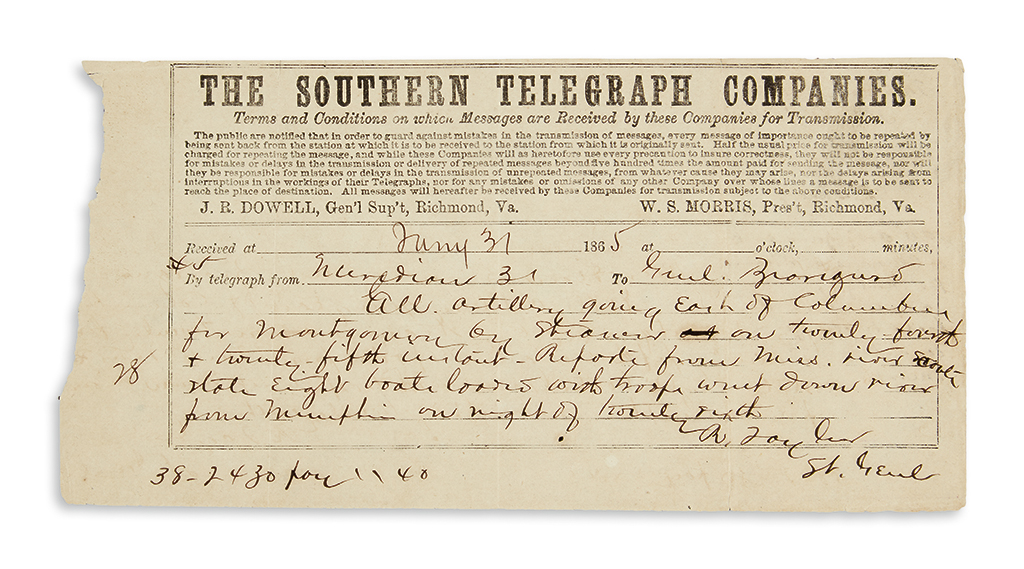 THE SOUTHERN TELEGRAPH COMPANIES.
Terms and Conditions on which Messages are Received by these Companies for Transmission.
The public are notified that in order to guard against mistakes in the transmission of messages, every message of importance ought to be repeated by
being sent back from the station at which it is to be received to the station from which it is originally sent. Half the usual price for transmission will be
charged for repeating the message, and while these Companies will as heretofore use every precaution to insure correctness, they will not be responsible
for mistakes or delays in the transmission or delivery of repeated messages beyond five hundred times the amount paid for sending the message, nor will
they be responsible for mistakes or delays in the transmission of unrepeated messages, from whatever cause they may arise, nor the delays arising from
interruptions in the workings of their Telegraphs, nor for any mistakes or omissions of any other Company over whose lines a message is to be sent to
reach the place of destination. All messages will hereafter be received by these Companies for transmission subject to the above conditions.
J. R. DOWELL, Gen'l Sup't, Richmond, Va. W. S. MORRIS, Pres't, Richmond, Va.
Received at Jany 31 1865 at o'clock, minutes,
By telegraph from Meridian 31 To Genl. Beauregard
All artillery going East of Columbus
for Montgomery by Steamer on twenty fourth
28 & twenty fifth instant - Reports from Miss. river
state Eight boats loaded with troops went down river
from Memphis on night of twenty sixth
R. Taylor
Lt. Genl
38-2430 pay 11 40